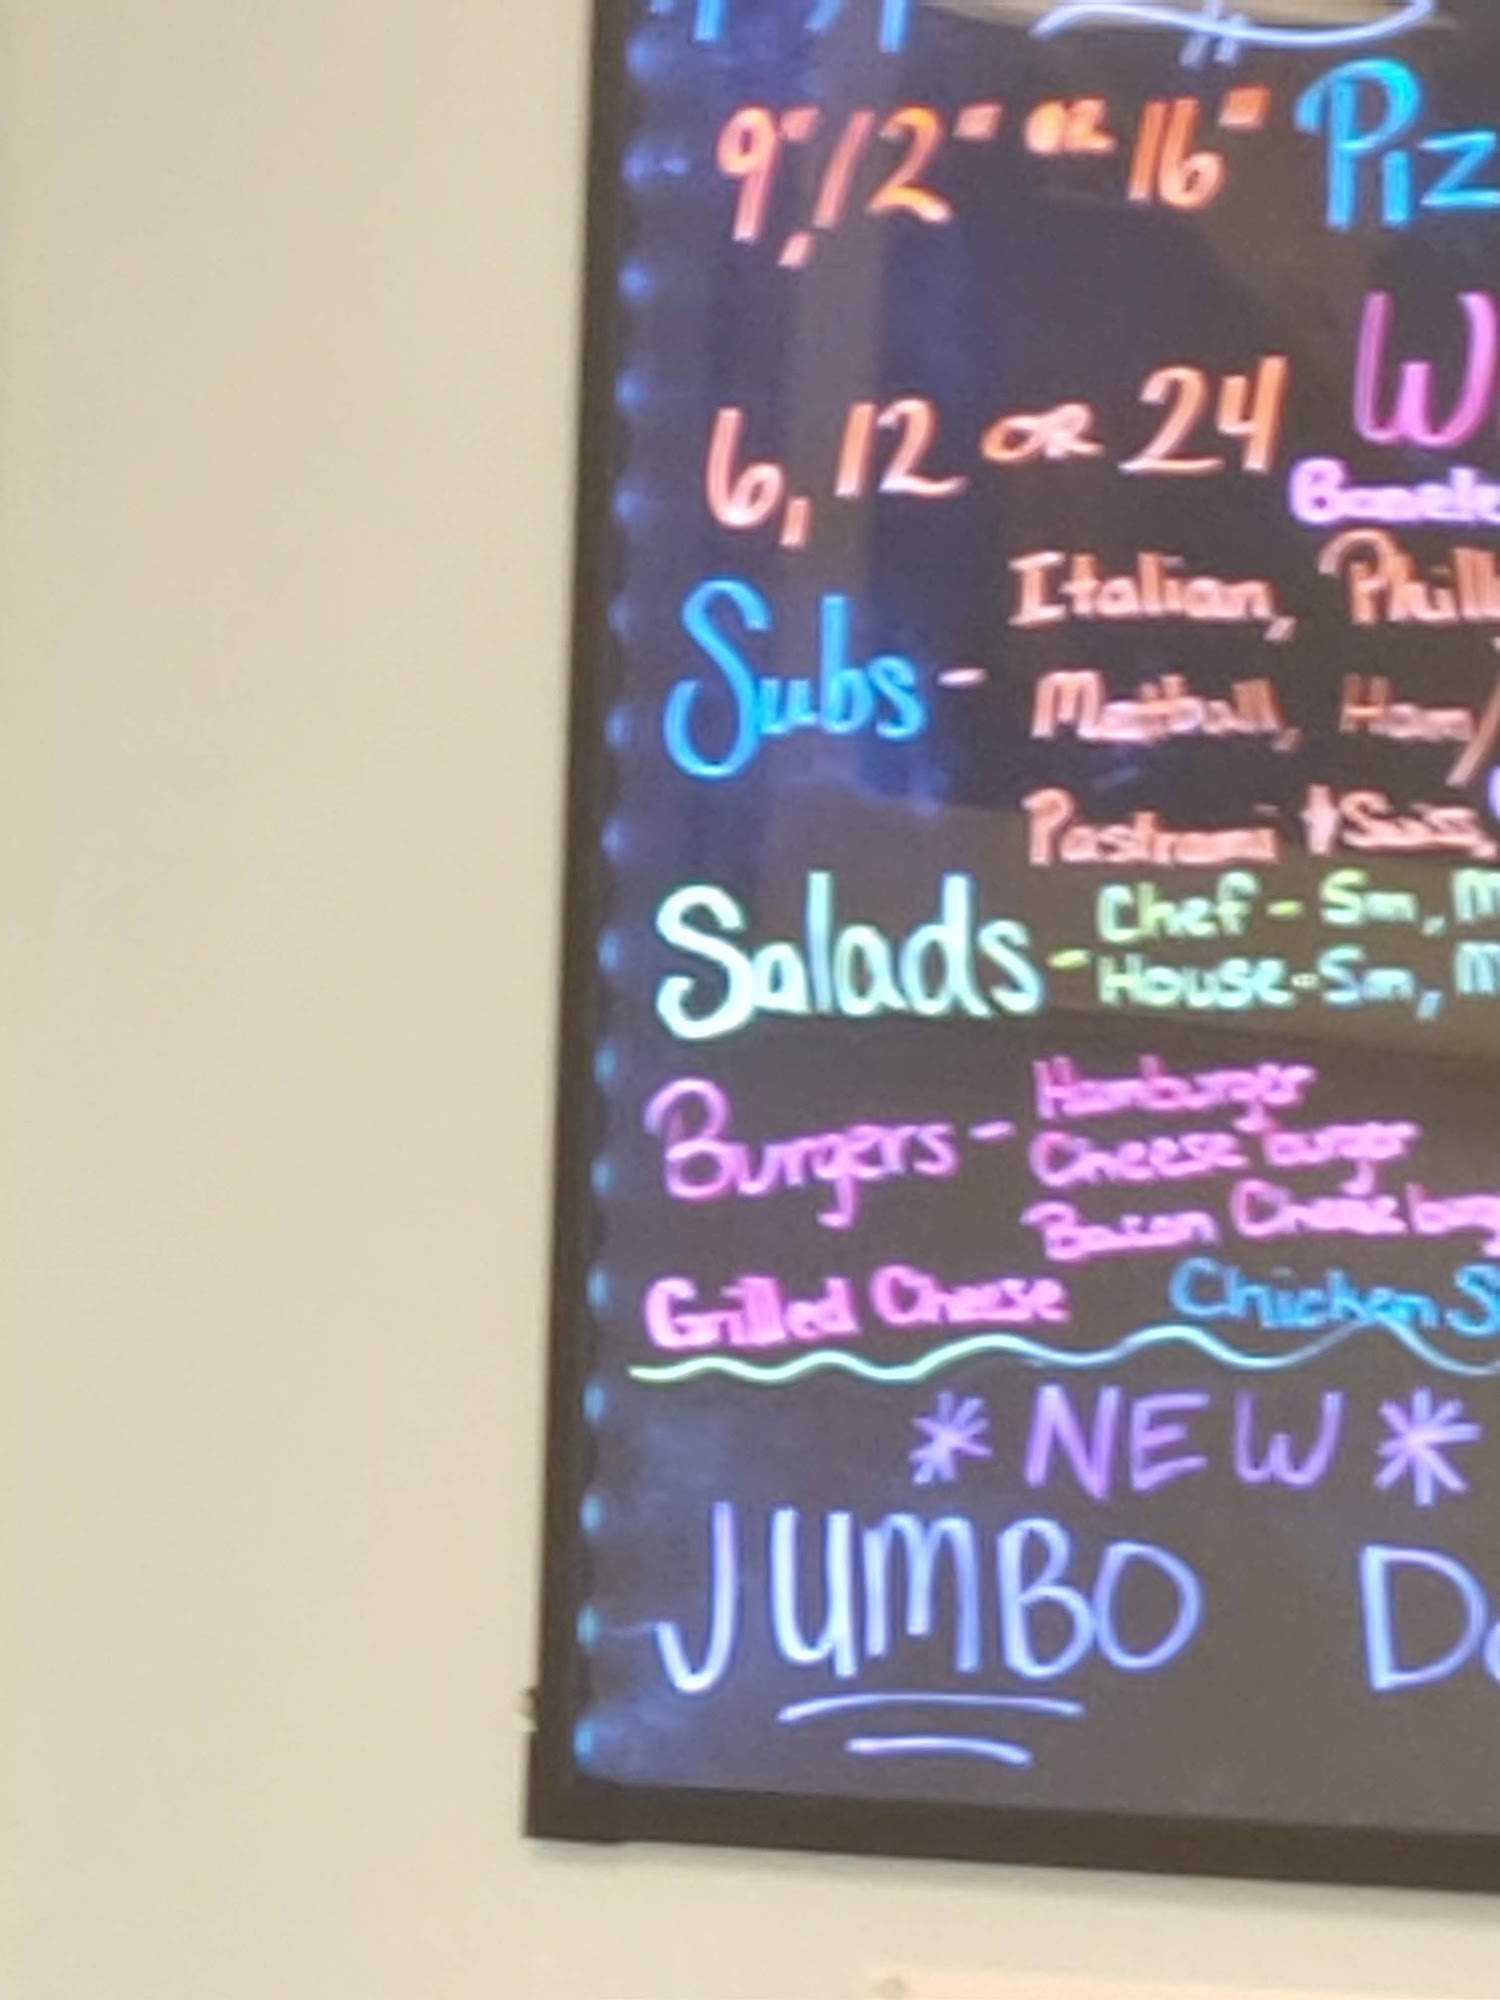 9", 12" or 16" Piz
6, 12 OR 24 W
Bonele
Italian, Phill
Subs - Meatball, Ham/
Pastrami + Swiss,
Salads - Chef - Sm, M
House - Sm, M
Burgers - Hamburger
Cheese burger
Bacon Cheese burg
Grilled Cheese Chicken S
* NEW *
JUMBO Do